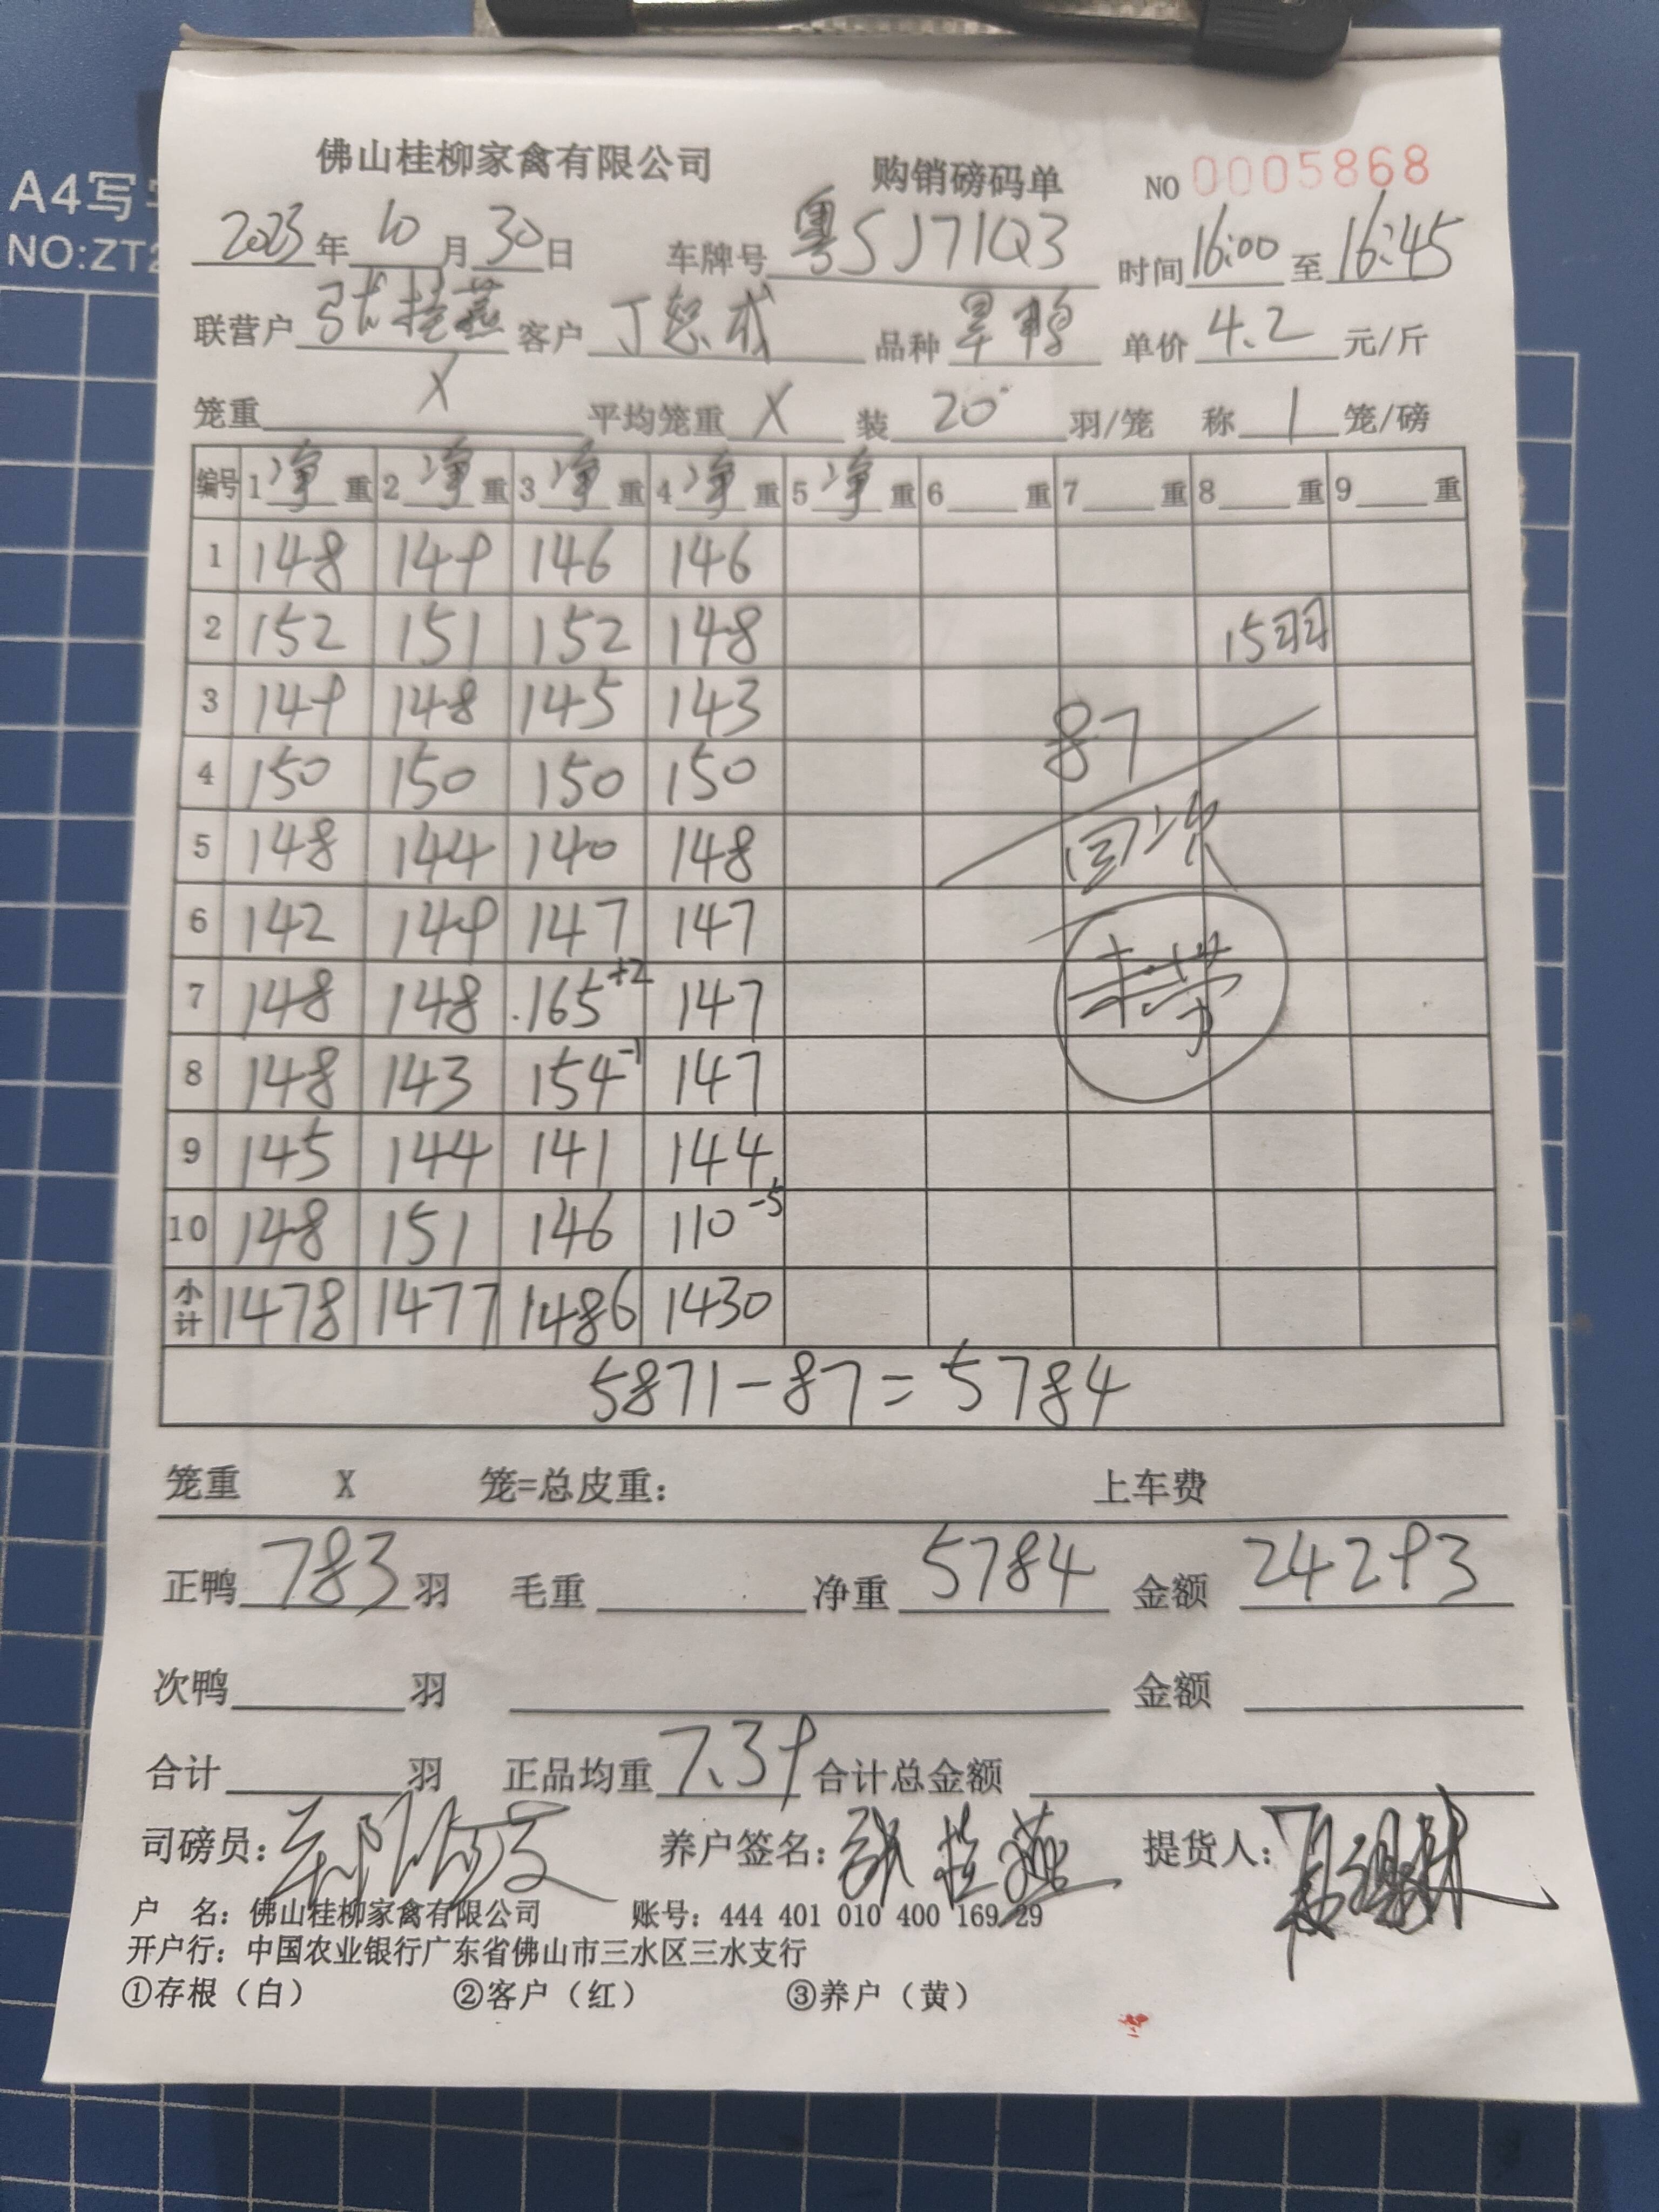 A4写
NO:ZT2
佛山桂柳家禽有限公司 购销磅码单 NO 0005868
2023年10月30日 车牌号 粤SJ71Q3 时间16:00至16:45
联营户 张桂燕 客户 丁 品种 旱鸭 单价 4.2 元/斤
笼重 X 平均笼重 X 装 20 羽/笼 称 1 笼/磅
编号 1净重 2净重 3净重 4净重 5净重 6重 7重 8重 9重
1 148 149 146 146
2 152 151 152 148 15羽
3 149 148 145 143 87
4 150 150 150 150
5 148 144 140 148 回次
6 142 149 147 147
7 148 148 165+2 147
8 148 143 154-1 147
9 145 144 141 144
10 148 151 146 110-5
小计 1478 1477 1486 1430
5871-87=5784
笼重 X 笼=总皮重: 上车费
正鸭 783 羽 毛重 净重 5784 金额 24293
次鸭 羽 金额
合计 羽 正品均重 7.39 合计总金额
司磅员: 养户签名: 张桂燕 提货人:
户 名: 佛山桂柳家禽有限公司 账号: 444 401 010 400 169 29
开户行: 中国农业银行广东省佛山市三水区三水支行
①存根（白） ②客户（红） ③养户（黄）